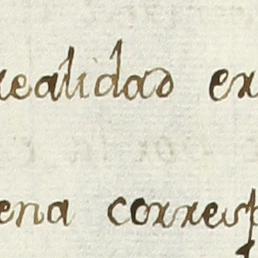 realidad en
ena corresp